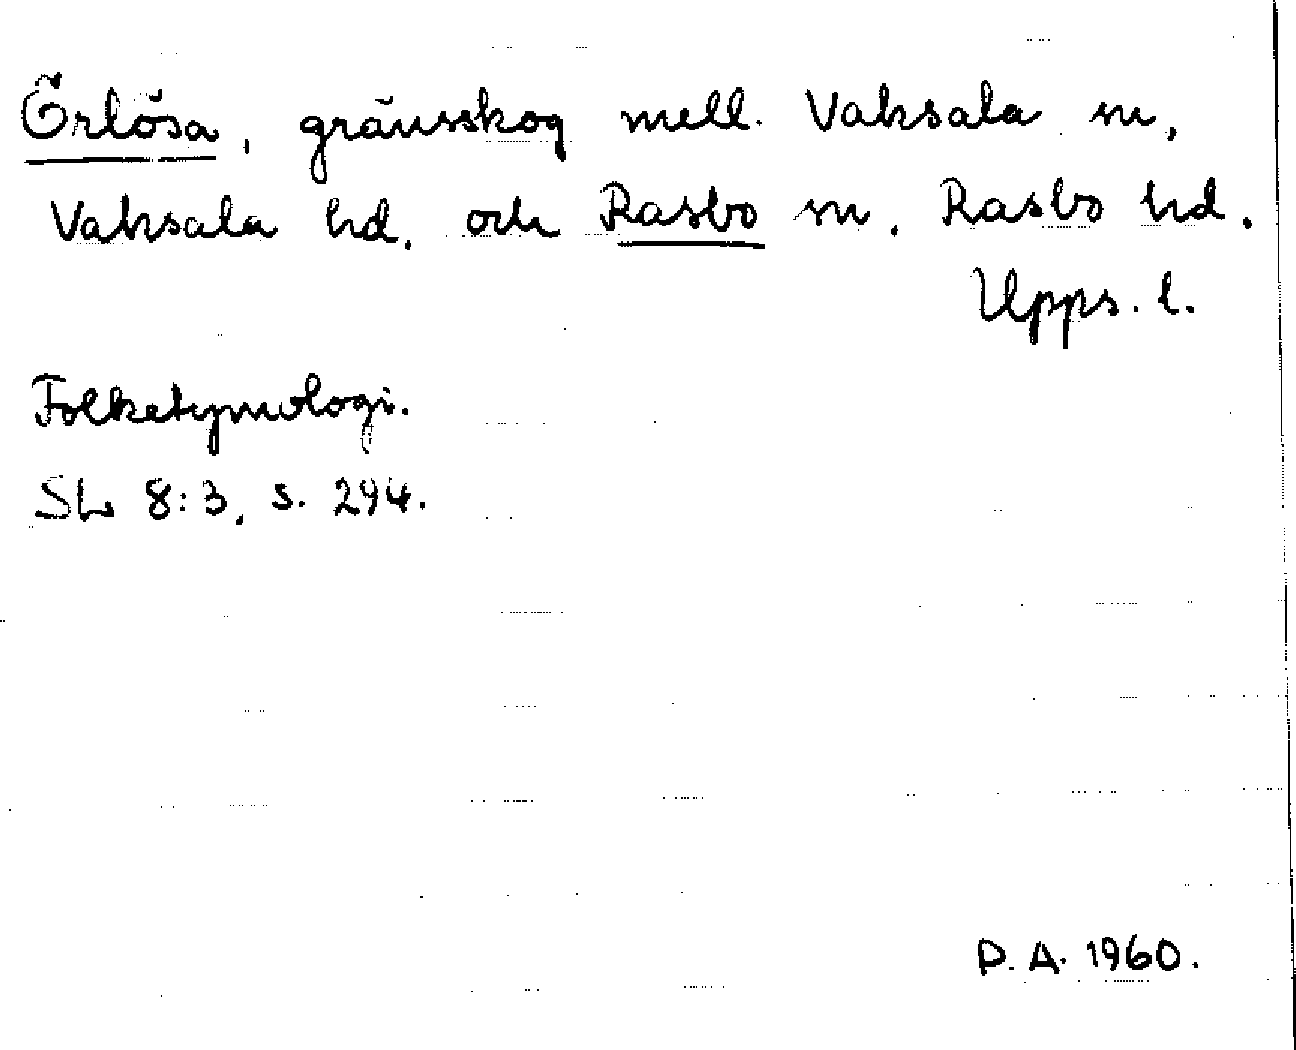 Örlösa, gränsskog mell. Vaksala sn,
Vaksala hd. och Rasbo sn, Rasbo hd.
Upps. l.
Folketymologi.
SL 8:3, s. 294.
D.A. 1960.